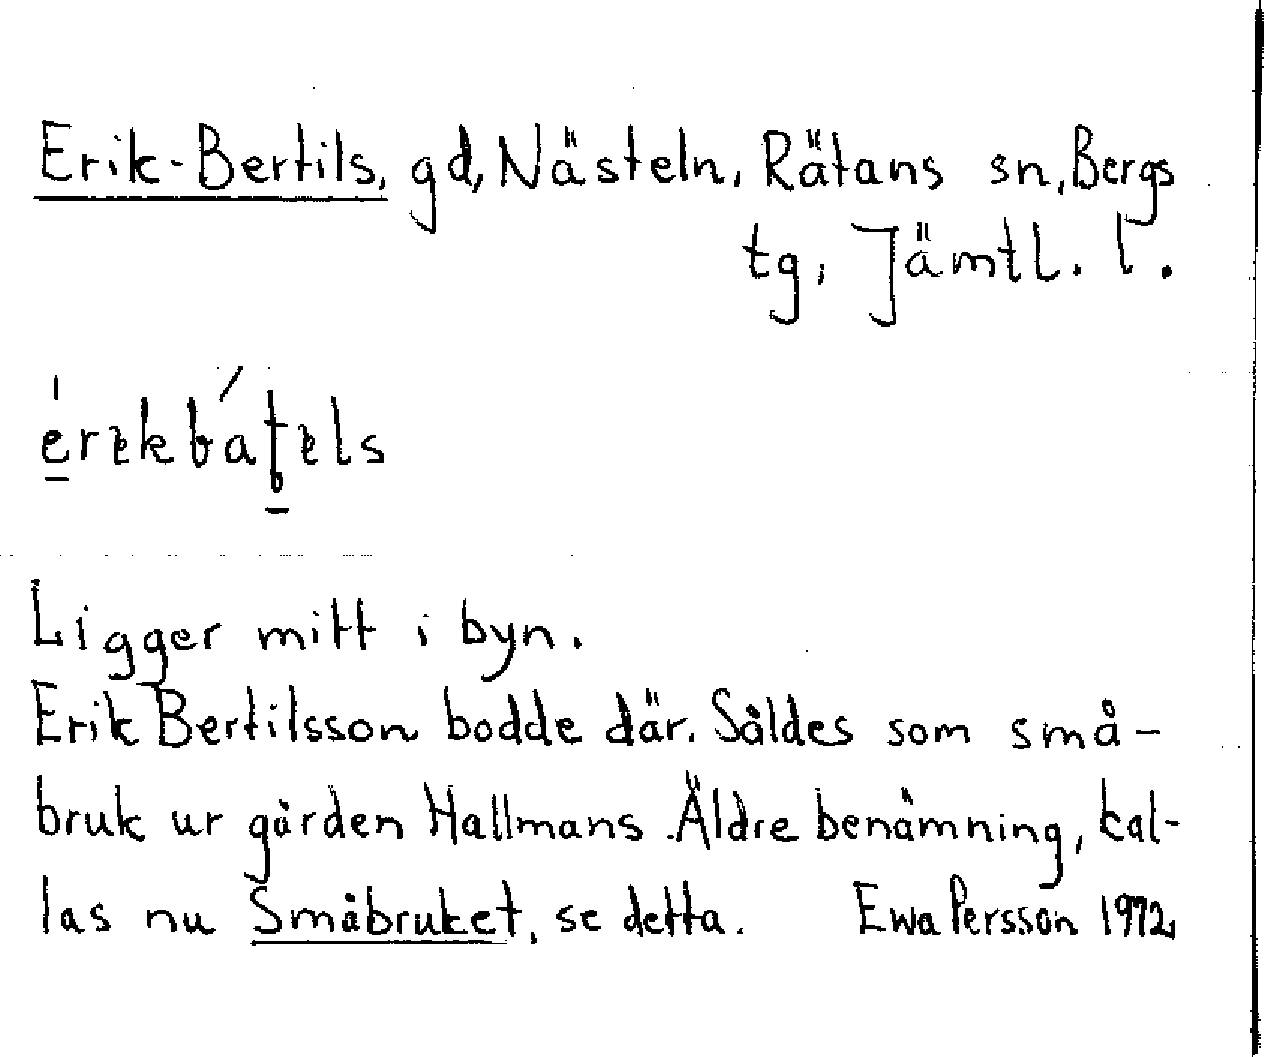 Erik-Bertils, gd, Nästeln, Rätans sn, Bergs
tg, Jämtl. l.
Ligger mitt i byn.
Erik Bertilsson bodde där. Såldes som små-
bruk ur gården Hallmans. Äldre benämning, kal-
las nu Småbruket, se detta. Ewa Persson 1972